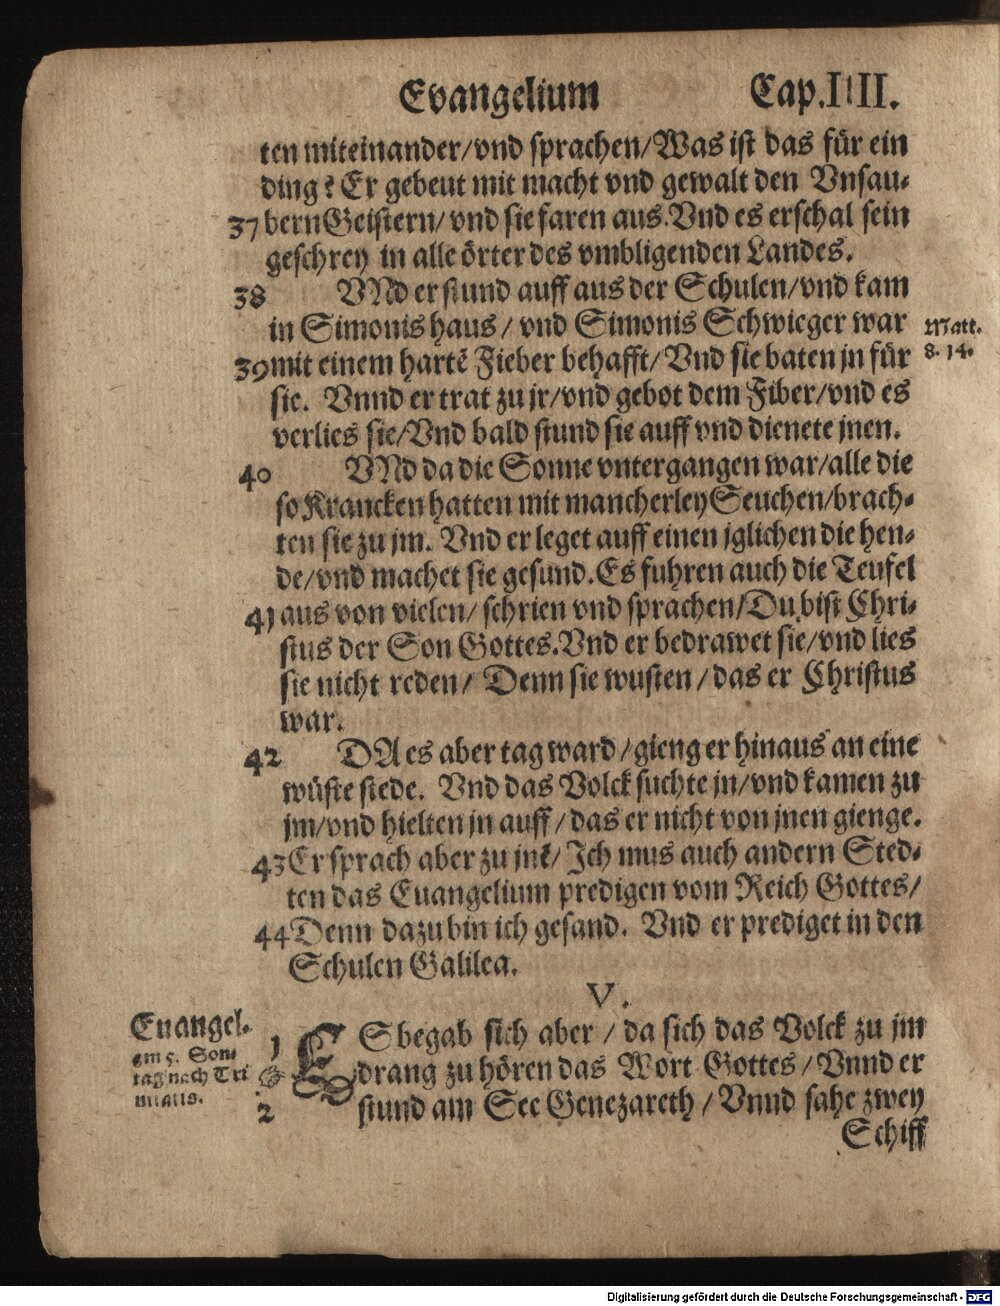 Evangelium Cap.IIII.
ten miteinander/vnd sprachen/Was ist das für ein
ding? Er gebeut mit macht vnd gewalt den Vnsau-
37 bern Geistern/vnd sie faren aus. Vnd es erschal sein
geschrey in alle örter des vmbligenden Landes.
38 VNd er stund auff aus der Schulen/vnd kam
in Simonis haus/vnd Simonis Schwieger war
Matt.
8. 14.
39 mit einem hartē Fieber behafft/Vnd sie baten jn für
sie. Vnnd er trat zu jr/vnd gebot dem Fiber/vnd es
verlies sie/Vnd bald stund sie auff vnd dienete jnen.
40 VNd da die Sonne vntergangen war/alle die
so Krancken hatten mit mancherley Seuchen/brach-
ten sie zu jm. Vnd er leget auff einen jglichen die hen-
de/vnd machet sie gesund. Es fuhren auch die Teufel
41 aus von vielen/schrien vnd sprachen/Du bist Chri-
stus der Son Gottes. Vnd er bedrawet sie/vnd lies
sie nicht reden/ Denn sie wusten/das er Christus
war.
42 DA es aber tag ward/gieng er hinaus an eine
wüste stede. Vnd das Volck suchte jn/vnd kamen zu
jm/vnd hielten jn auff/das er nicht von jnen gienge.
43 Er sprach aber zu jnē/Ich mus auch andern Sted-
ten das Euangelium predigen vom Reich Gottes/
44 Denn dazu bin ich gesand. Vnd er prediget in den
Schulen Galilea.
V.
Euangel.
am 5. Son-
tag nach Tri
nitatis.
1 ES begab sich aber/da sich das Volck zu jm
drang zu hören das Wort Gottes/Vnnd er
2 stund am See Genezareth/Vnnd sahe zwey
Schiff
Digitalisierung gefördert durch die Deutsche Forschungsgemeinschaft - DFG